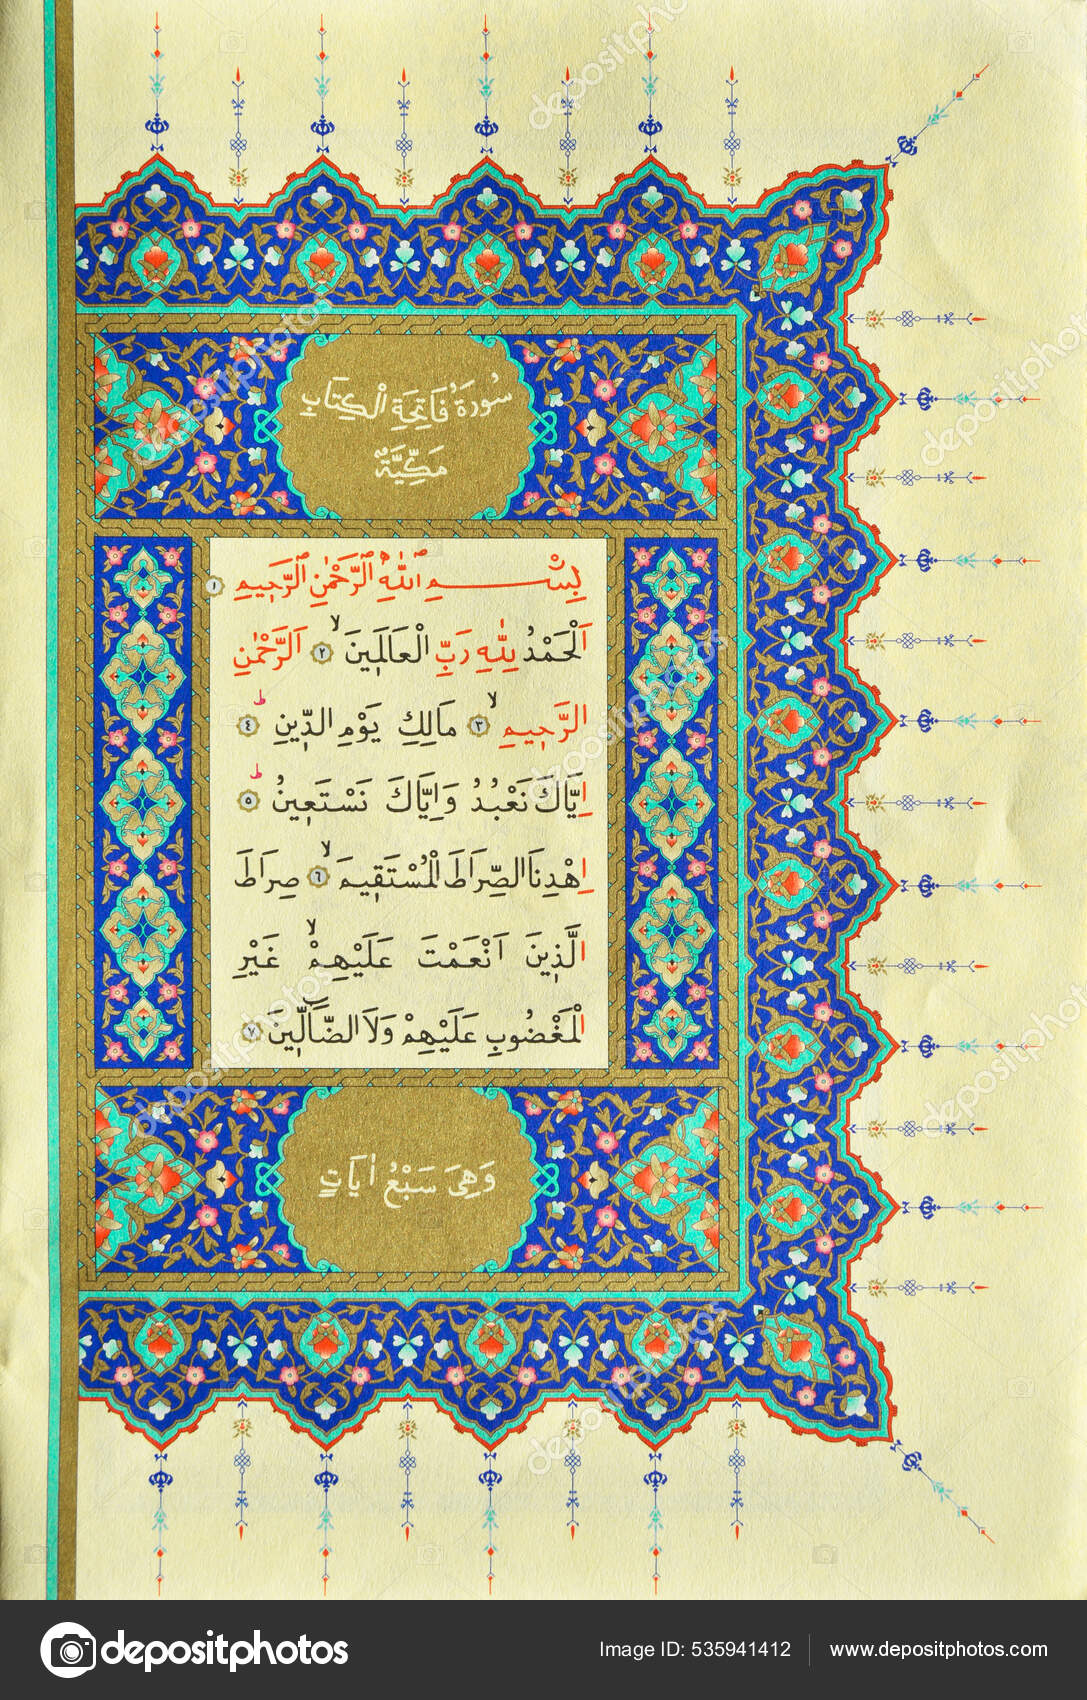 سُورَةُ فَاتِحَةِ الْكِتَابِ
مَكِّيَّةٌ
بِسْمِ اللّٰهِ الرَّحْمٰنِ الرَّحِيمِ ١
اَلْحَمْدُ لِلّٰهِ رَبِّ الْعَالَمِينَۙ ٢ اَلرَّحْمٰنِ
الرَّحِيمِۙ ٣ مَالِكِ يَوْمِ الدِّينِۜ ٤
اِيَّاكَ نَعْبُدُ وَاِيَّاكَ نَسْتَعِينُۜ ٥
اِهْدِنَا الصِّرَاطَ الْمُسْتَقِيمَۙ ٦ صِرَاطَ
الَّذِينَ اَنْعَمْتَ عَلَيْهِمْۙ غَيْرِ
الْمَغْضُوبِ عَلَيْهِمْ وَلَا الضَّٓالِّينَ ٧
وَهِيَ سَبْعُ اٰيَاتٍ
depositphotos
Image ID: 535941412
www.depositphotos.com